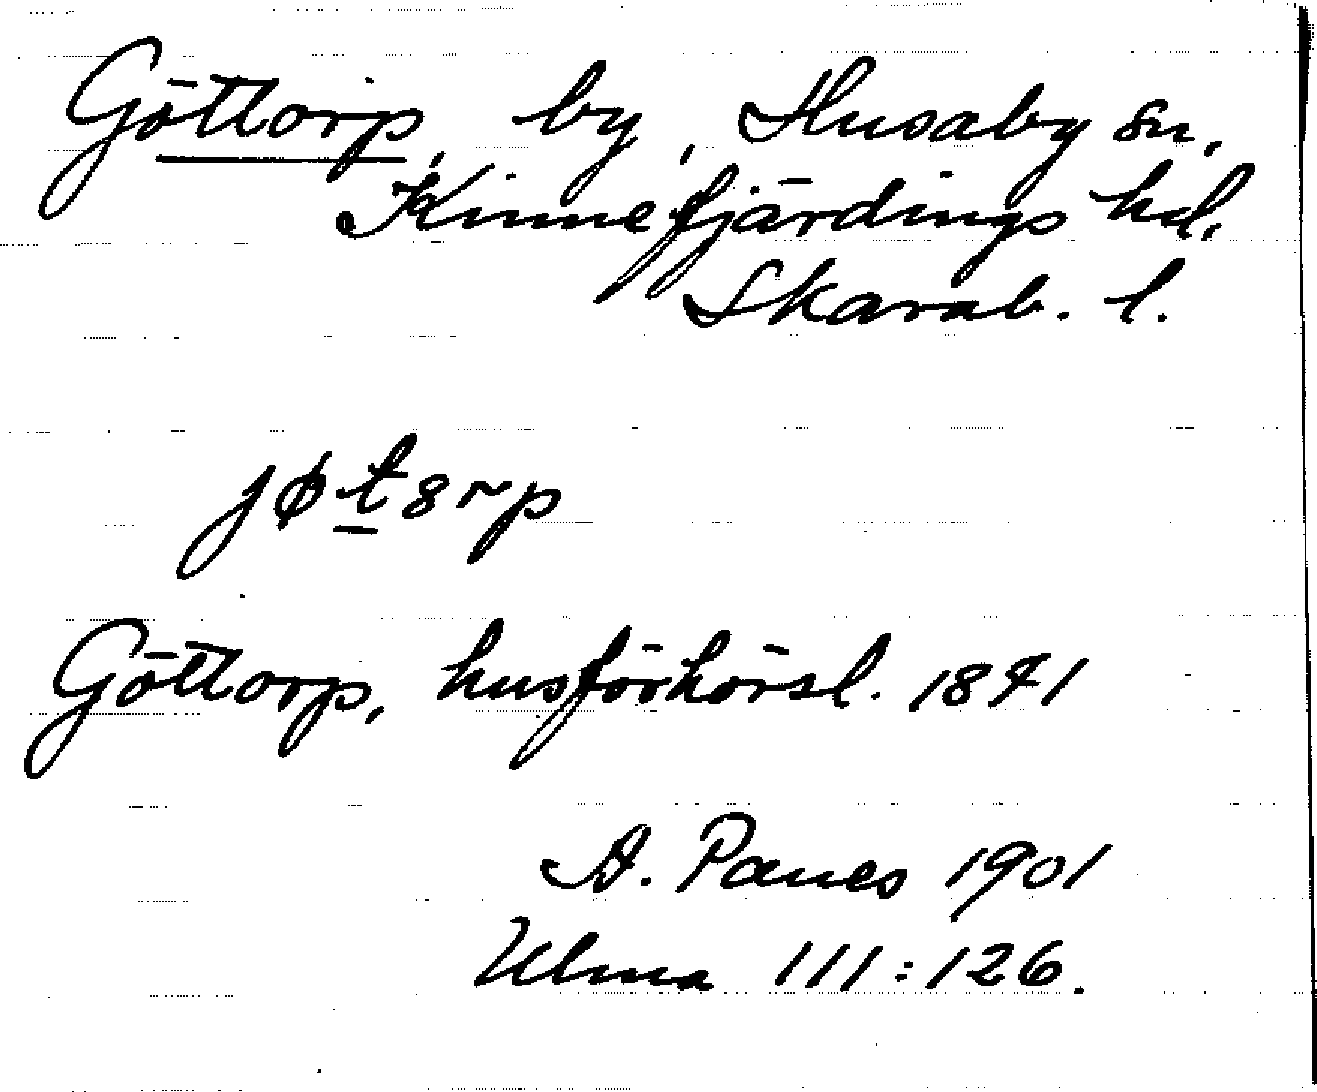 Göttorp, by, Husaby sn,
Kinnefjärdings hd,
Skarab. l.
jøt8rp
Göttorp, husförhörsl. 1841
A. Panes 1901
Ulma 111:126.